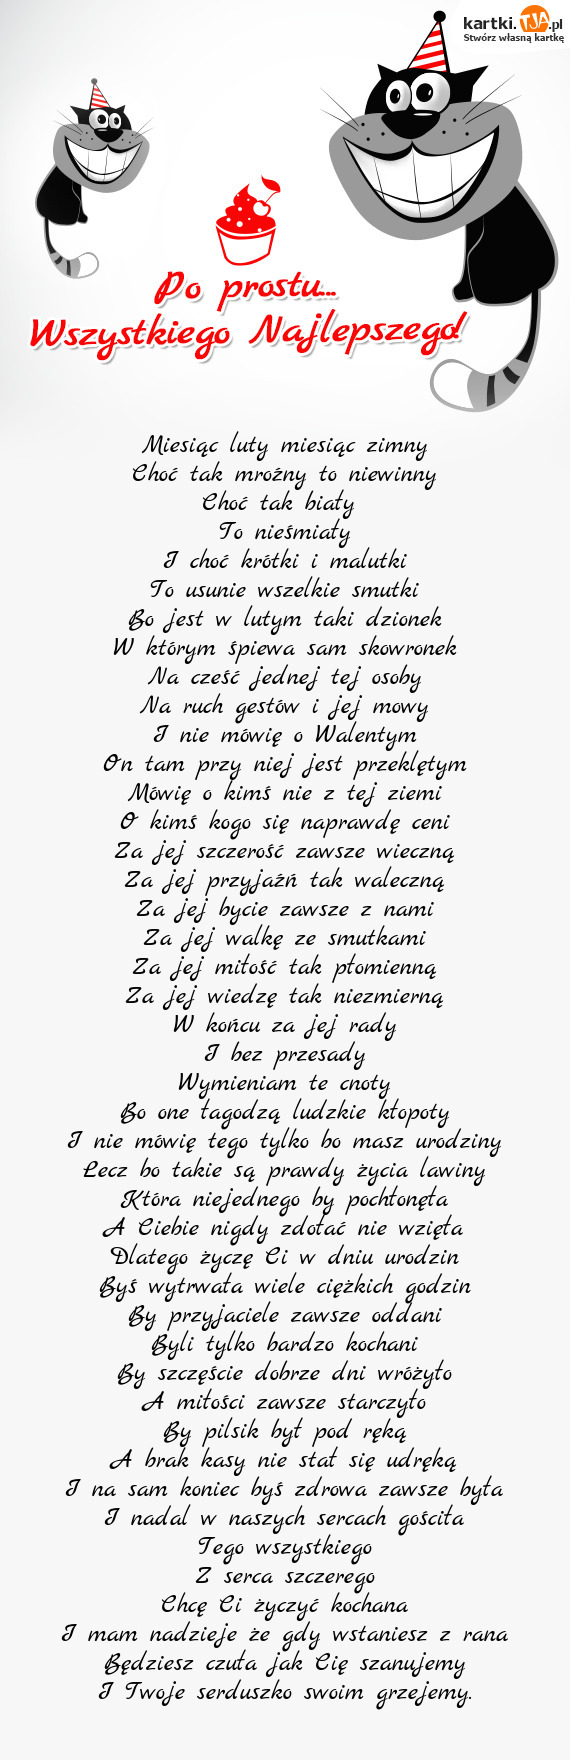 kartki.TJA.pl
Stwórz własną kartkę
Po prostu...
Wszystkiego Najlepszego!
Miesiąc luty miesiąc zimny
Choć tak mroźny to niewinny
Choć tak biały
To nieśmiały
I choć krótki i malutki
To usunie wszelkie smutki
Bo jest w lutym taki dzionek
W którym śpiewa sam skowronek
Na cześć jednej tej osoby
Na ruch gestów i jej mowy
I nie mówię o Walentym
On tam przy niej jest przeklętym
Mówię o kimś nie z tej ziemi
O kimś kogo się naprawdę ceni
Za jej szczerość zawsze wieczną
Za jej przyjaźń tak waleczną
Za jej bycie zawsze z nami
Za jej walkę ze smutkami
Za jej miłość tak płomienną
Za jej wiedzę tak niezmierną
W końcu za jej rady
I bez przesady
Wymieniam te cnoty
Bo one łagodzą ludzkie kłopoty
I nie mówię tego tylko bo masz urodziny
Lecz bo takie są prawdy życia lawiny
Która niejednego by pochłonęła
A Ciebie nigdy zdołać nie wzięła
Dlatego życzę Ci w dniu urodzin
Byś wytrwała wiele ciężkich godzin
By przyjaciele zawsze oddani
Byli tylko bardzo kochani
By szczęście dobrze dni wróżyło
A miłości zawsze starczyło
By pilsik był pod ręką
A brak kasy nie stał się udręką
I na sam koniec byś zdrowa zawsze była
I nadal w naszych sercach gościła
Tego wszystkiego
Z serca szczerego
Chcę Ci życzyć kochana
I mam nadzieje że gdy wstaniesz z rana
Będziesz czuła jak Cię szanujemy
I Twoje serduszko swoim grzejemy.